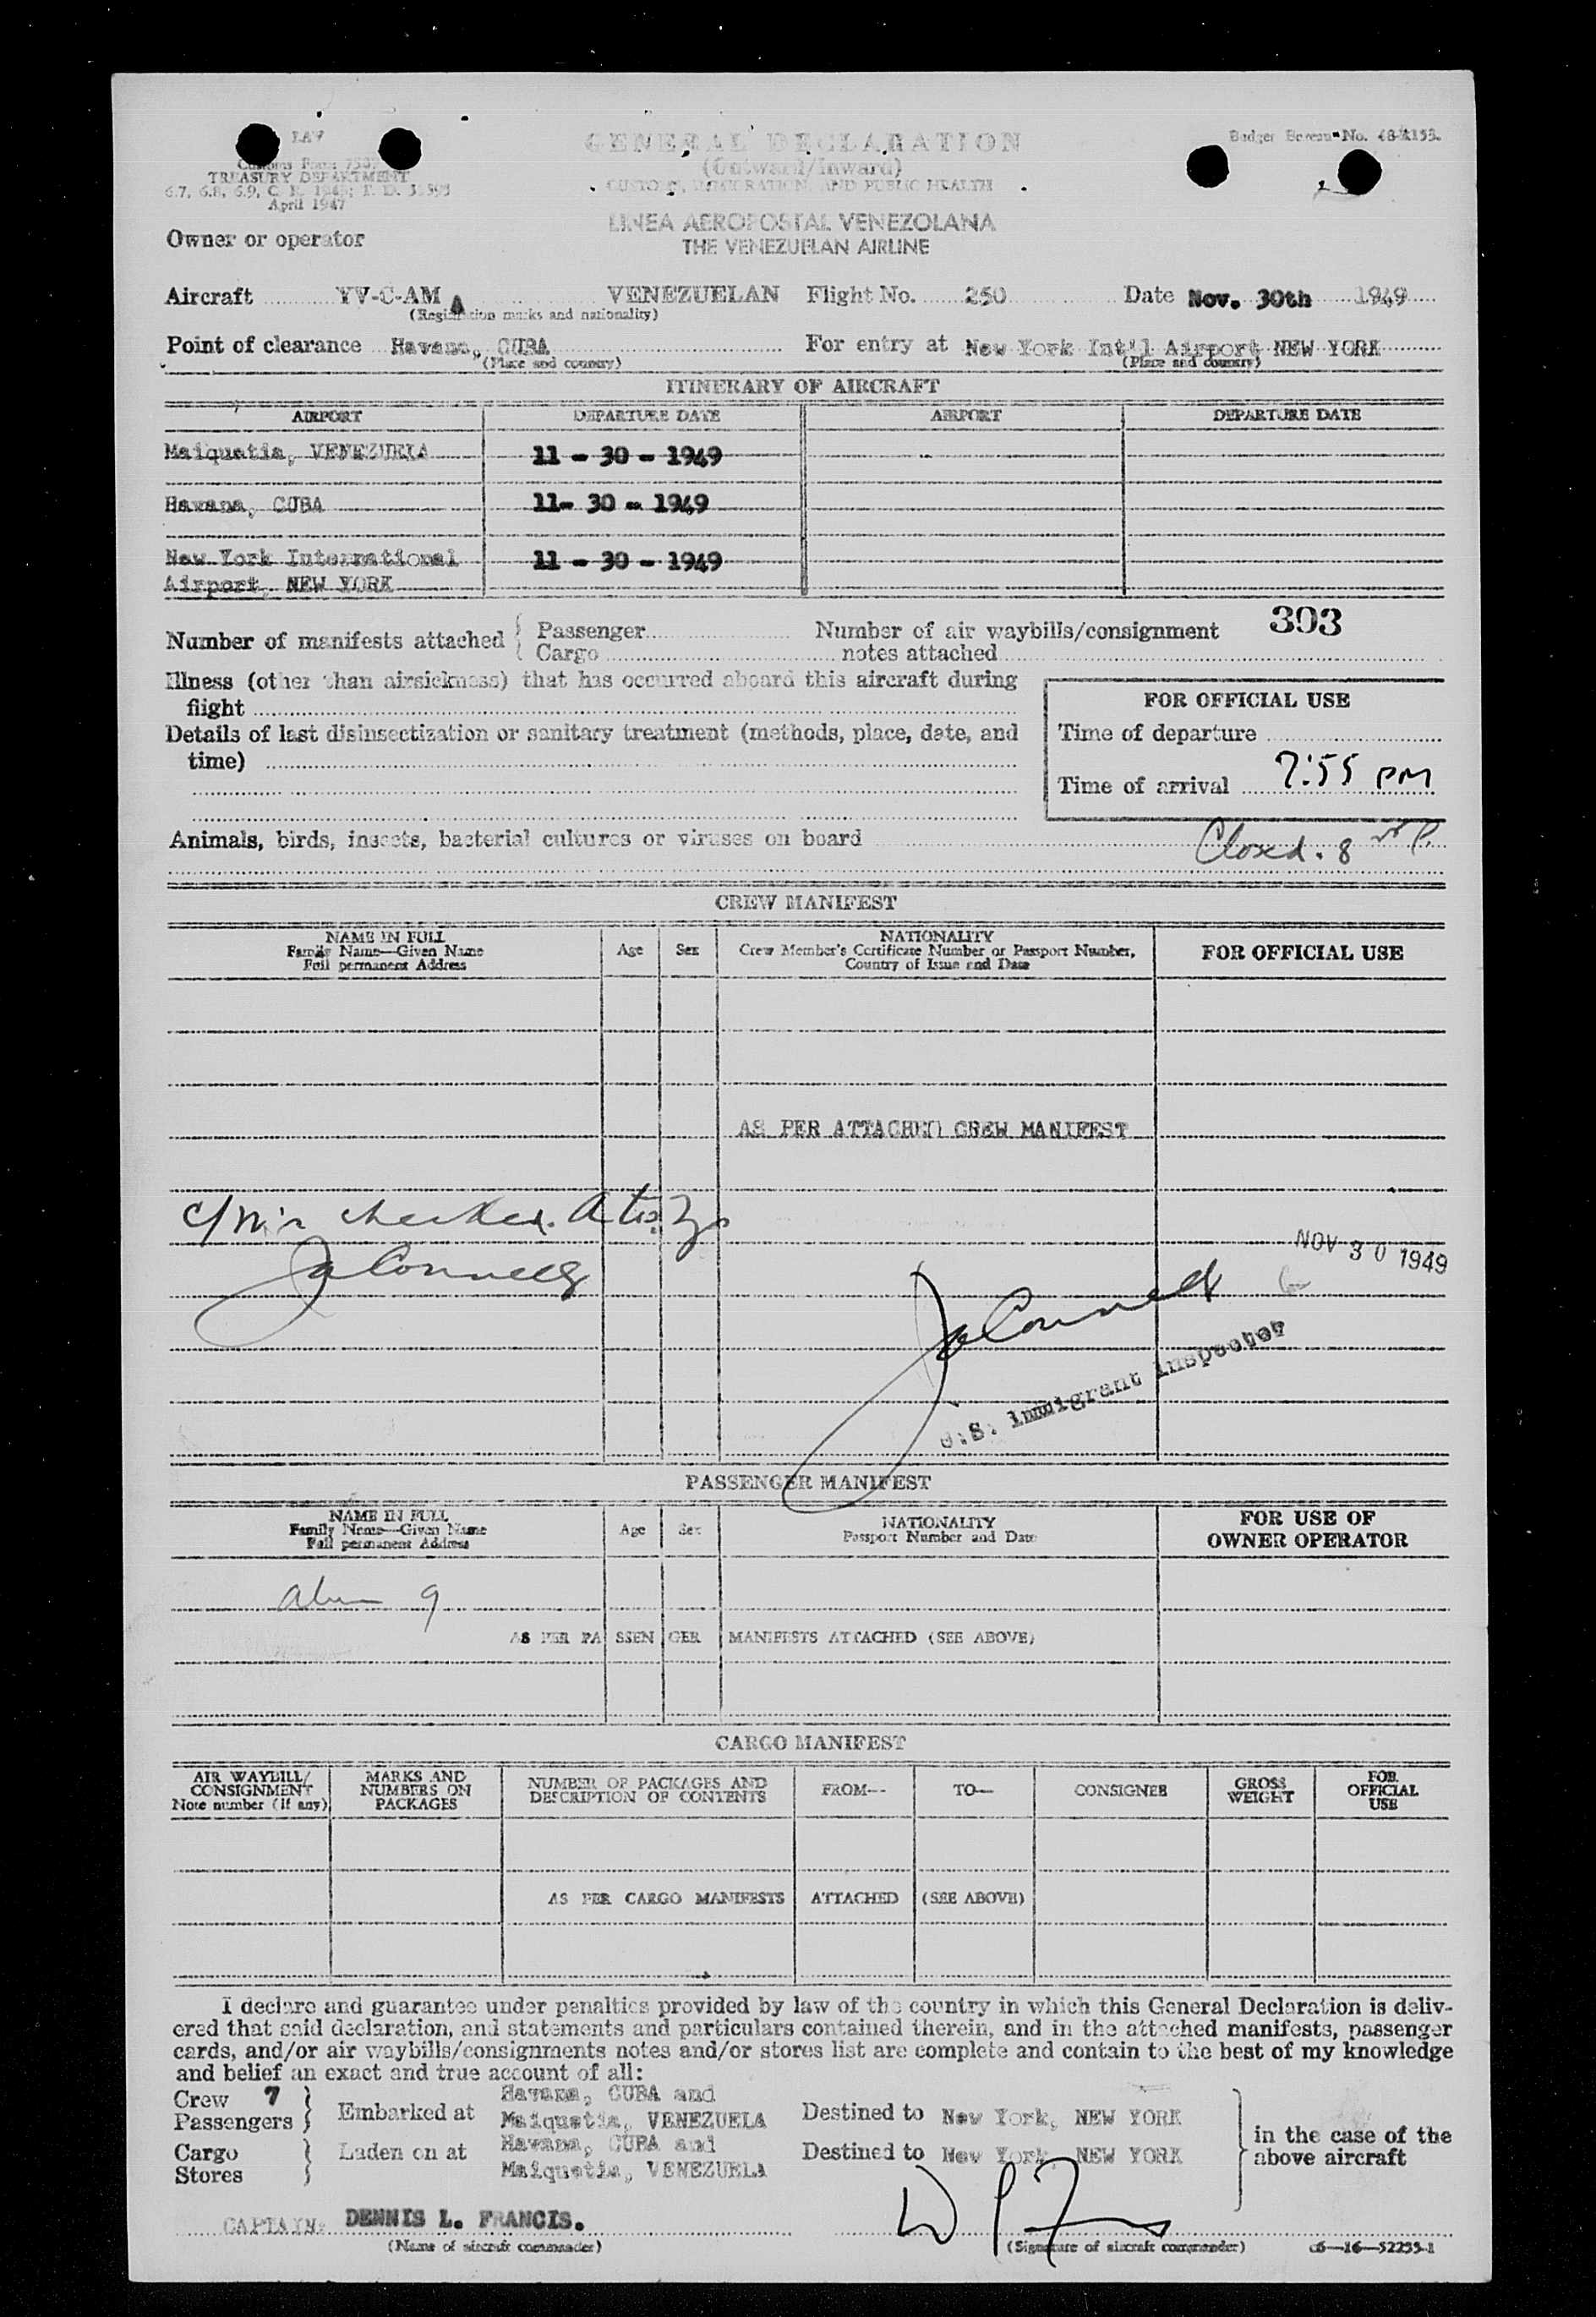 LAV
GENERAL DECLARATION
Budget Bureau No.
Customs Form 7507
(Outward/Inward)
TREASURY DEPARTMENT
CUSTOMS, IMMIGRATION, AND PUBLIC HEALTH
April 1947
LINEA AEROPOSTAL VENEZOLANA
THE VENEZUELAN AIRLINE
Owner or operator
Aircraft YV-C-AMA VENEZUELAN Flight No. 250 Date Nov. 30th 1949
(Registration marks and nationality)
Point of clearance Havana, CUBA For entry at New York Int'l Airport NEW YORK
(Place and country) (Place and country)
ITINERARY OF AIRCRAFT
AIRPORT DEPARTURE DATE AIRPORT DEPARTURE DATE
Maiquetia, VENEZUELA 11 - 30 - 1949
Havana, CUBA 11- 30 - 1949
New York International 11 - 30 - 1949
Airport, NEW YORK
303
Number of manifests attached { Passenger Number of air waybills/consignment
Cargo notes attached
Illness (other than airsickness) that has occurred aboard this aircraft during
flight
FOR OFFICIAL USE
Details of last disinsectization or sanitary treatment (methods, place, date, and
time)
Time of departure
Time of arrival 7:55 PM
Animals, birds, insects, bacterial cultures or viruses on board
Closed. 8 P.
CREW MANIFEST
NAME IN FULL
Family Name—Given Name
Full permanent Address
Age Sex
NATIONALITY
Crew Member's Certificate Number or Passport Number,
Country of Issue and Date
FOR OFFICIAL USE
AS PER ATTACHED CREW MANIFEST
NOV 30 1949
U.S. Immigrant Inspector
PASSENGER MANIFEST
NAME IN FULL
Family Name—Given Name
Full permanent Address
Age Sex
NATIONALITY
Passport Number and Date
FOR USE OF
OWNER OPERATOR
9
AS PER PASSENGER MANIFESTS ATTACHED (SEE ABOVE)
CARGO MANIFEST
AIR WAYBILL/
CONSIGNMENT
Note number (if any)
MARKS AND
NUMBERS ON
PACKAGES
NUMBER OF PACKAGES AND
DESCRIPTION OF CONTENTS
FROM—
TO—
CONSIGNEE
GROSS
WEIGHT
FOR
OFFICIAL
USE
AS PER CARGO MANIFESTS ATTACHED (SEE ABOVE)
I declare and guarantee under penalties provided by law of the country in which this General Declaration is deliv-
ered that said declaration, and statements and particulars contained therein, and in the attached manifests, passenger
cards, and/or air waybills/consignments notes and/or stores list are complete and contain to the best of my knowledge
and belief an exact and true account of all:
Crew 7 } Embarked at Havana, CUBA and
Passengers } Maiquetia, VENEZUELA Destined to New York, NEW YORK
Cargo } Laden on at Havana, CUBA and Destined to New York, NEW YORK
Stores } Maiquetia, VENEZUELA
} in the case of the
above aircraft
CAPTAIN: DENNIS L. FRANCIS.
(Name of aircraft commander) (Signature of aircraft commander) c6—16—52255-1